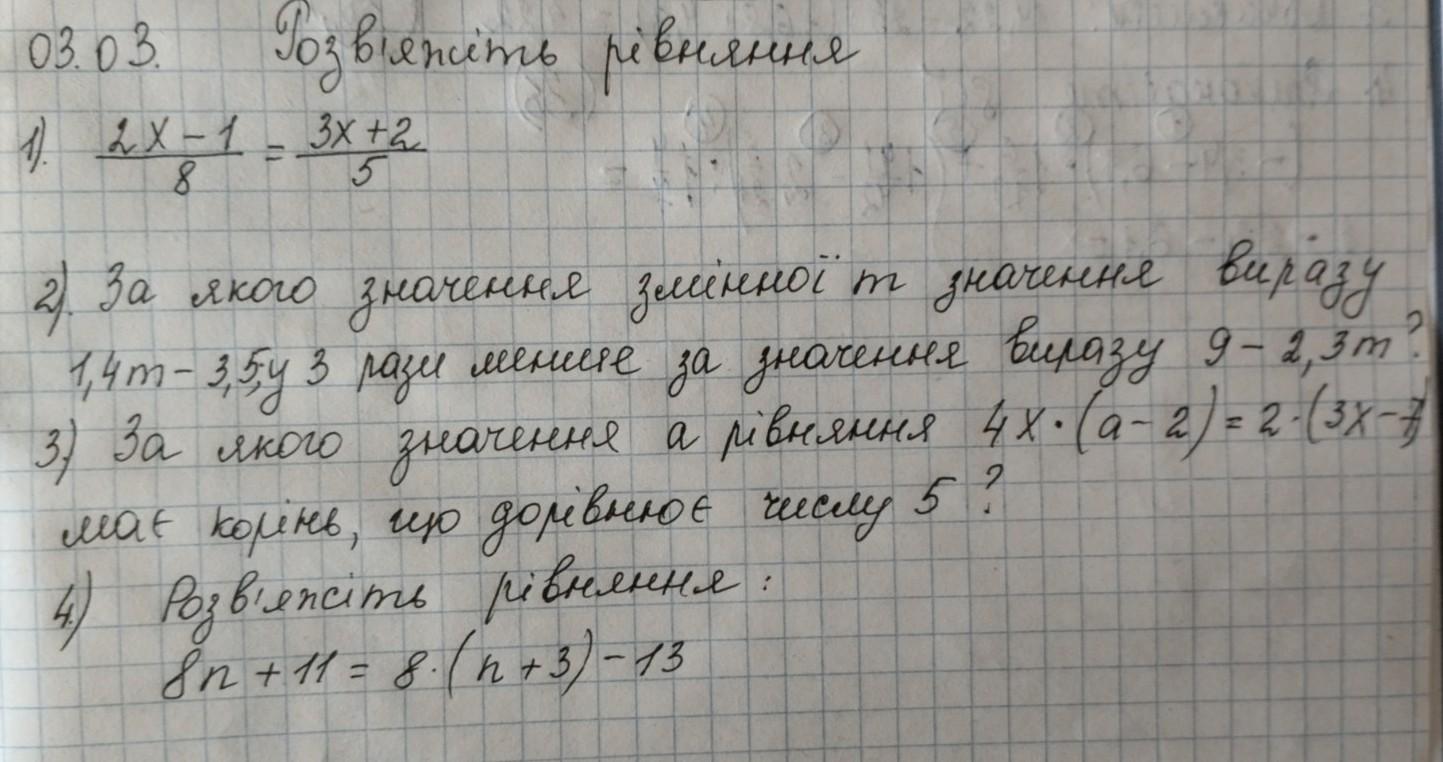 03.03. Розв'яжіть рівняння
1). (2x-1)/8 = (3x+2)/5
2). За якого значення змінної m значення виразу
1,4m - 3,5 у 3 рази менше за значення виразу 9 - 2,3m?
3) За якого значення a рівняння 4x·(a-2)=2·(3x-7)
має корінь, що дорівнює числу 5?
4.) Розв'яжіть рівняння:
8n + 11 = 8·(n+3) - 13